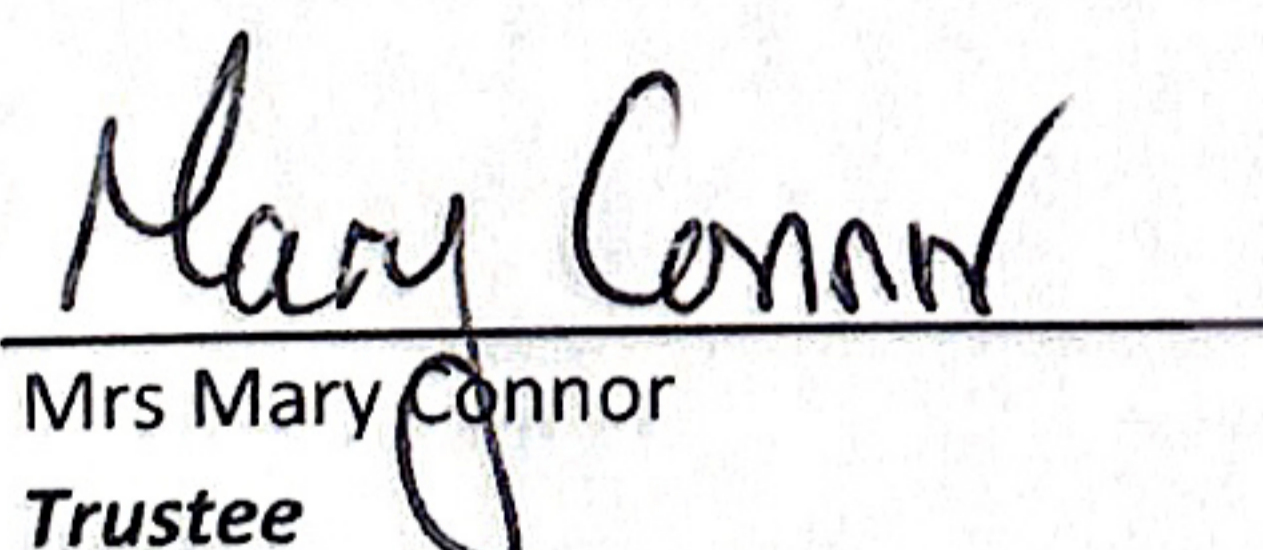 Mary Connor
Mrs Mary Connor
Trustee